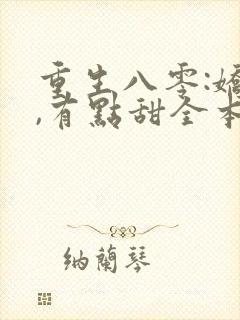 重生八零:嬌
,有點甜全本
纳蘭琴